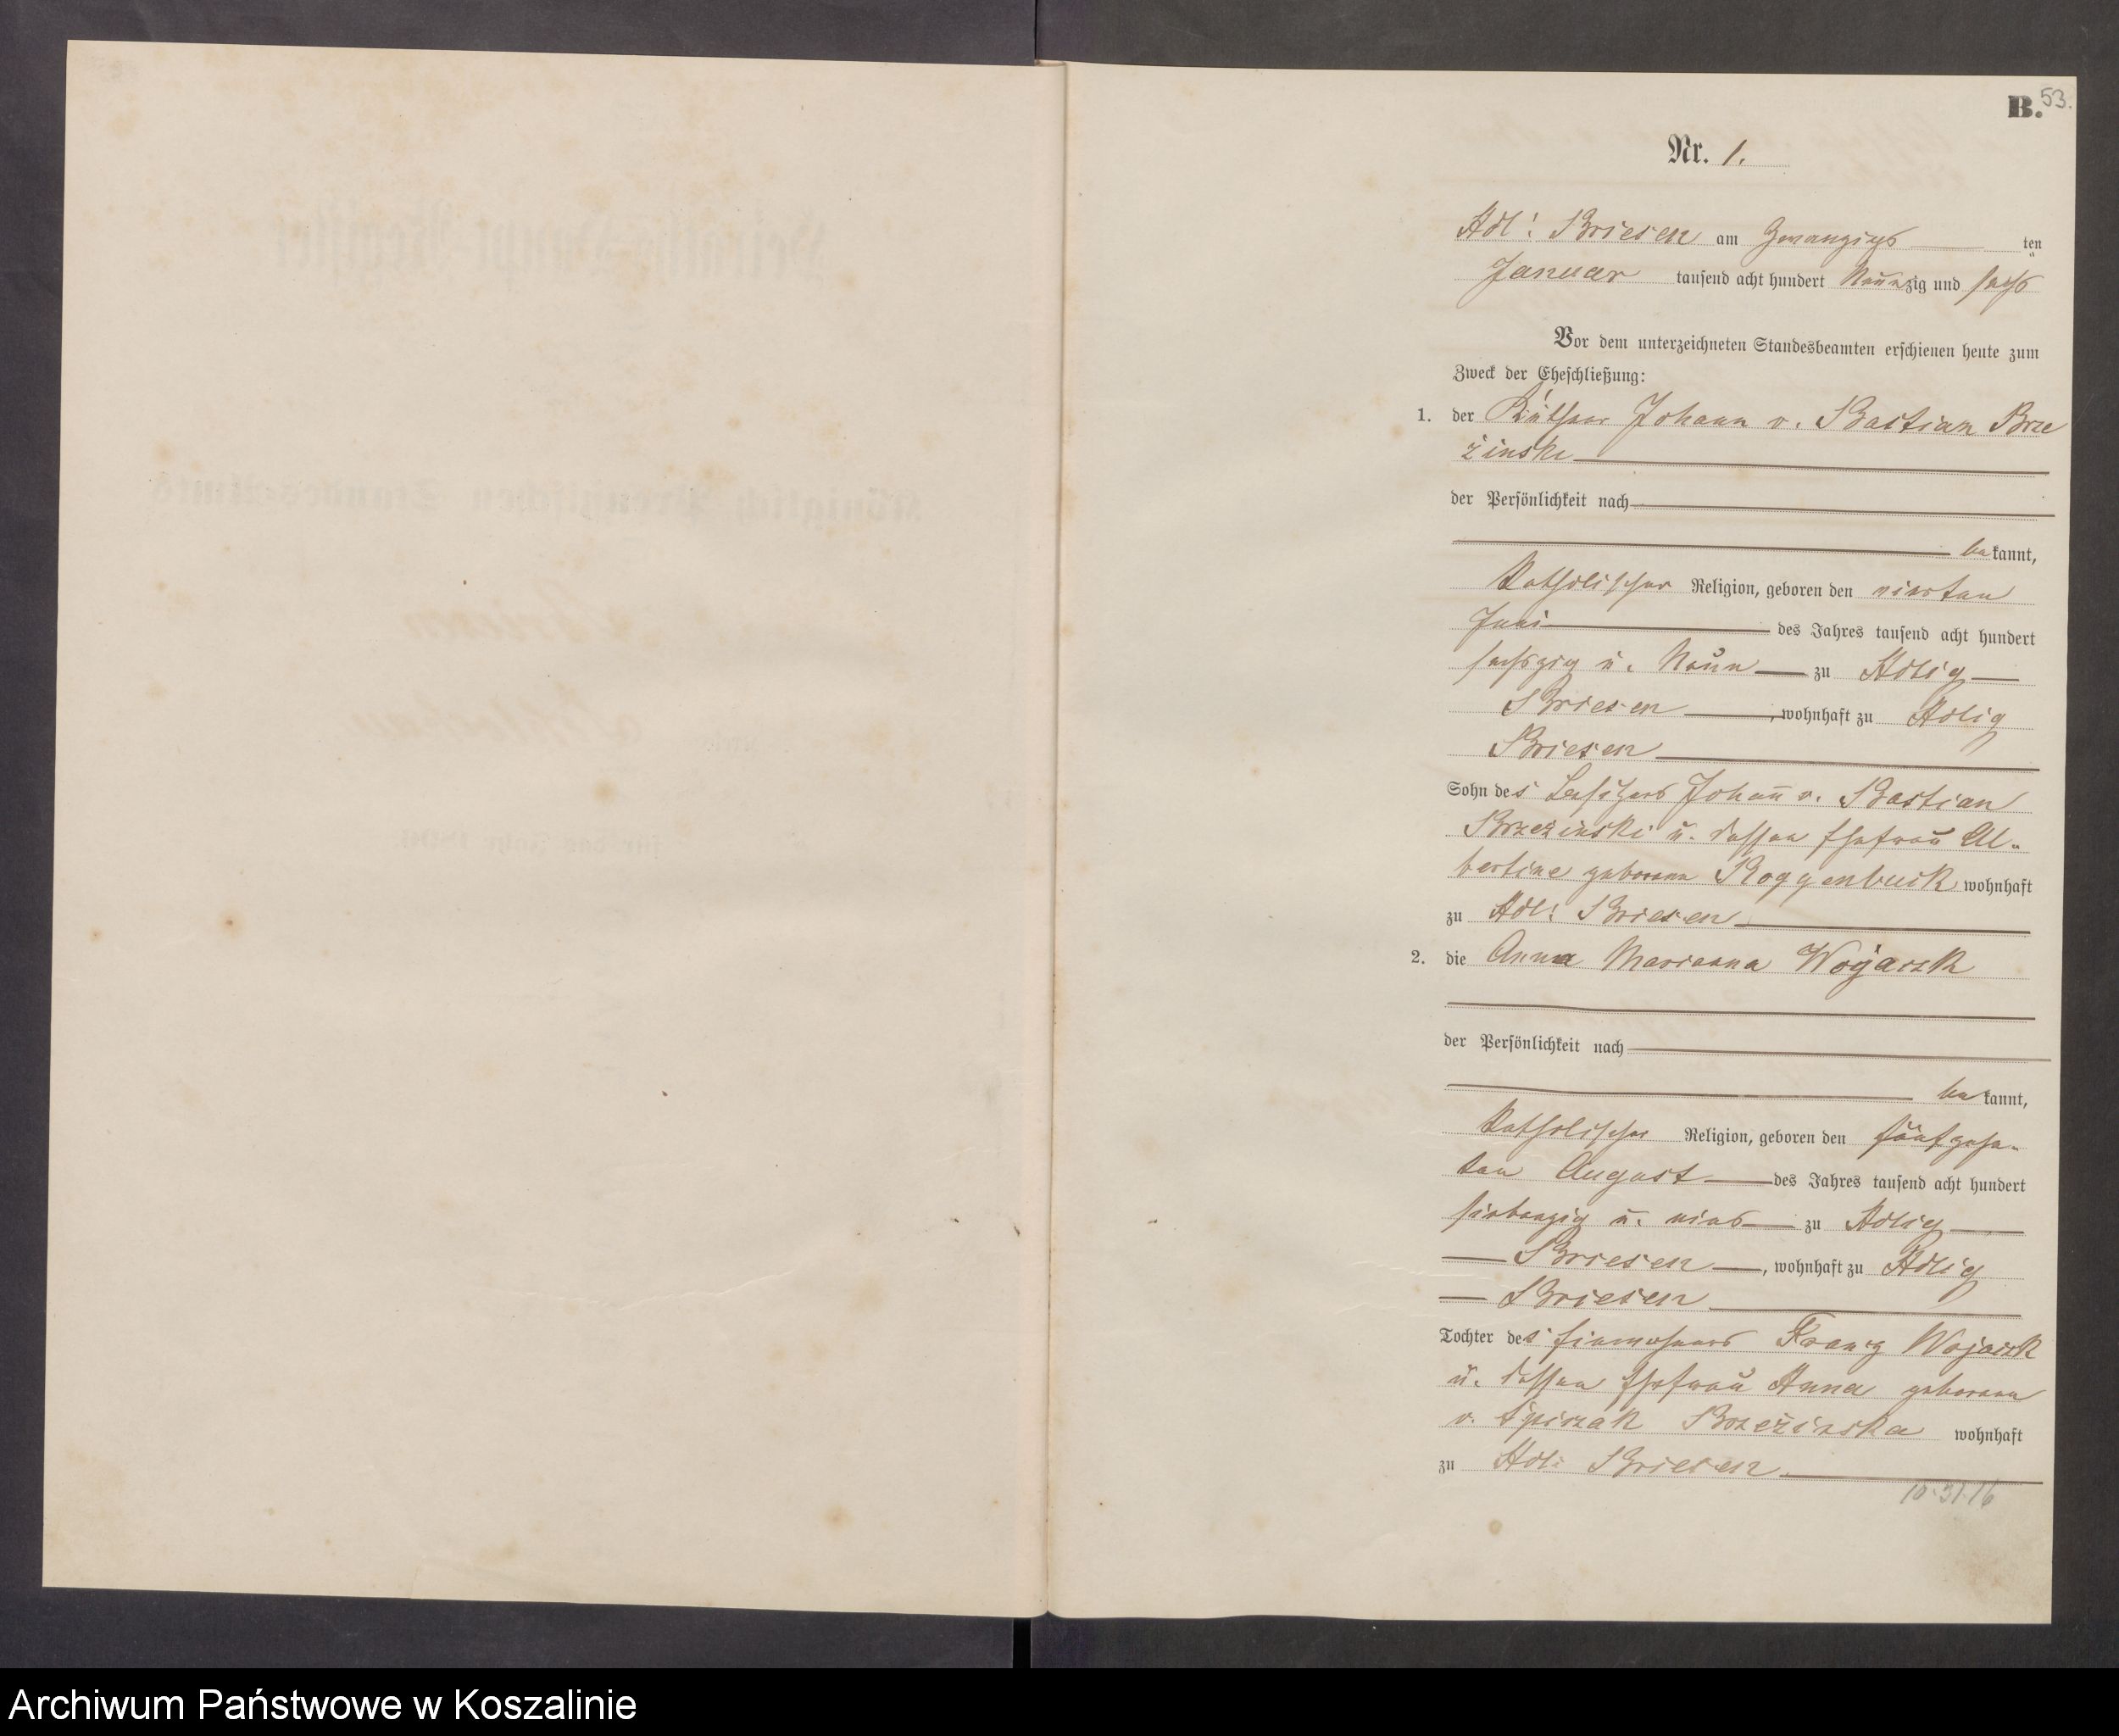 B. 53.
Nr. 1.
Adl: Briesen am Zwanzigs ten
Januar tausend acht hundert Neunzig und sechs
Vor dem unterzeichneten Standesbeamten erschienen heute zum
Zweck der Eheschließung:
1. der Käthner Johann v. Bastian Brze
zinski
der Persönlichkeit nach
bekannt,
Katholischer Religion, geboren den vierten
Juni des Jahres tausend acht hundert
sechszig u. Neun zu Adlig
Briesen, wohnhaft zu Adlig
Briesen
Sohn des Besitzers Johann v. Bastian
Brzezinski u. dessen Ehefrau Al-
bertine geborene Roggenbuck wohnhaft
zu Adl: Briesen
2. die Anna Marianna Wojaczk
der Persönlichkeit nach
bekannt,
Katholischer Religion, geboren den fünfzehn-
ten August des Jahres tausend acht hundert
siebenzig u. vier zu Adlig
Briesen, wohnhaft zu Adlig
Briesen
Tochter des Einwohners Franz Wojaczk
u. dessen Ehefrau Anna geborene
v. Spiczak Brzezinska wohnhaft
zu Adl: Briesen
10.31.16
Königlich Preußischen Standes-Amts
Briesen
Schlochau
für das Jahr 1896.
Archiwum Państwowe w Koszalinie